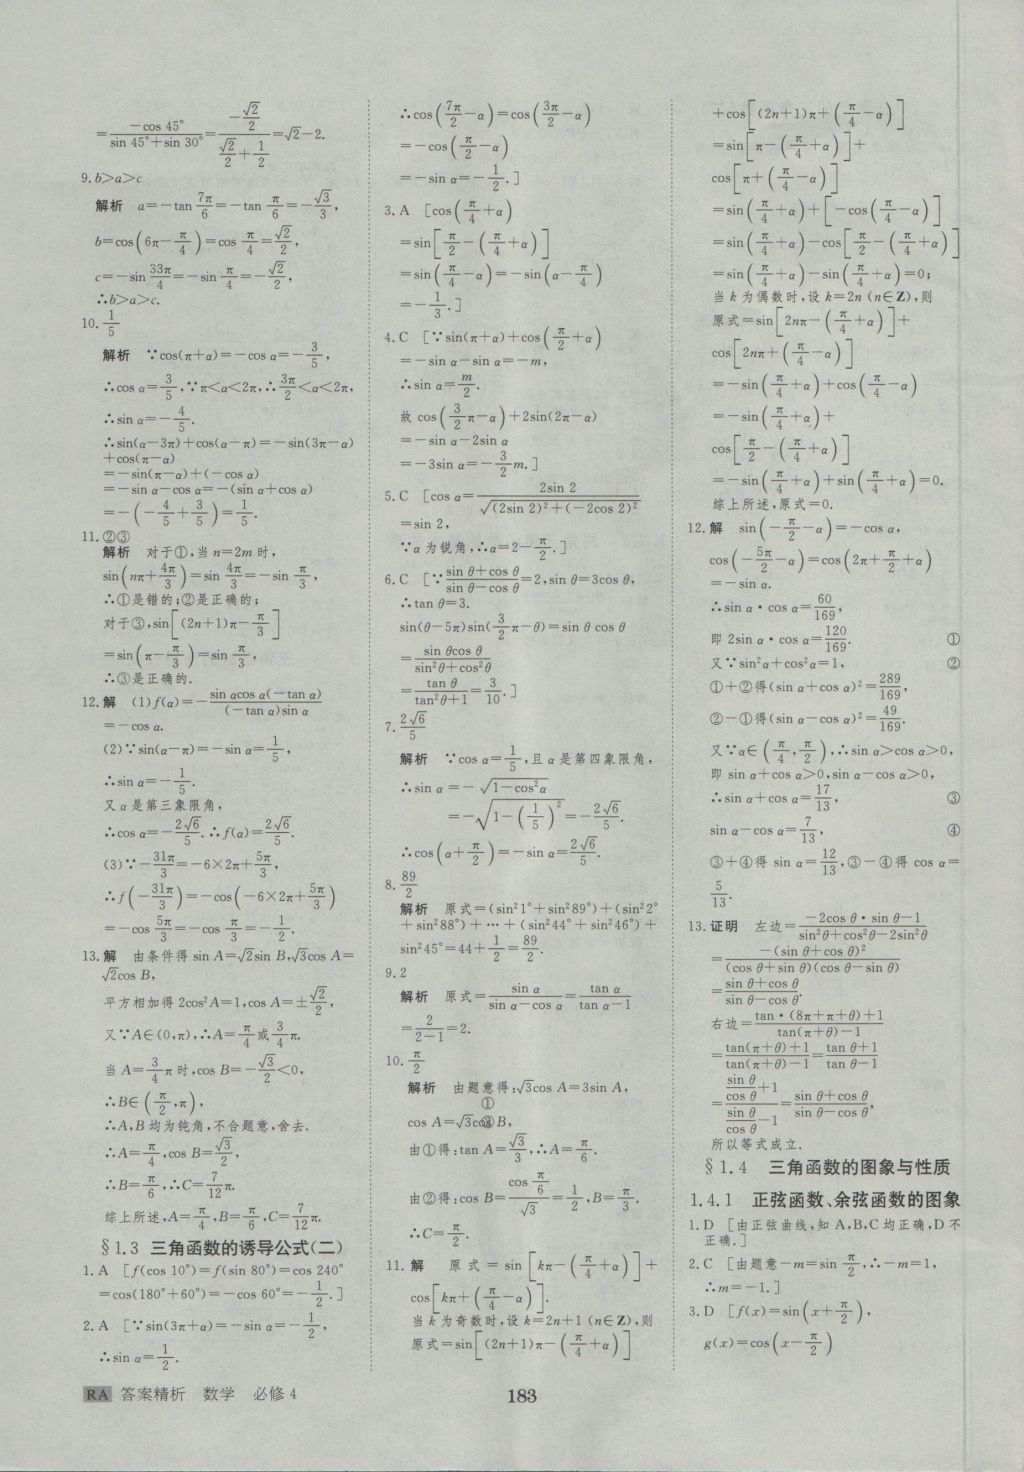 =(-cos 45°)/(sin 45°+sin 30°)=(-√2/2)/(√2/2+1/2)=√2-2.
9. b>a>c
解析 a=-tan 7π/6=-tan π/6=-√3/3,
b=cos(6π-π/4)=cos π/4=√2/2,
c=-sin 33π/4=-sin π/4=-√2/2,
∴b>a>c.
10. 1/5
解析 ∵cos(π+α)=-cos α=-3/5,
∴cos α=3/5,∵π<α<2π,∴3π/2<α<2π,
∴sin α=-4/5.
∴sin(α-3π)+cos(α-π)=-sin(3π-α)
+cos(π-α)
=-sin(π-α)+(-cos α)
=-sin α-cos α=-(sin α+cos α)
=-(-4/5+3/5)=1/5.
11. ②③
解析 对于①,当 n=2m 时,
sin(nπ+4π/3)=sin 4π/3=-sin π/3,
∴①是错的;②是正确的;
对于③,sin[(2n+1)π-π/3]
=sin(π-π/3)=sin π/3,
∴③是正确的.
12. 解 (1)f(α)=-sin αcos α(-tan α)/(-tan α)sin α
=-cos α.
(2)∵sin(α-π)=-sin α=1/5,
∴sin α=-1/5.
又 α 是第三象限角,
∴cos α=-2√6/5.∴f(α)=2√6/5.
(3)∵-31π/3=-6×2π+5π/3,
∴f(-31π/3)=-cos(-6×2π+5π/3)
=-cos 5π/3=-cos π/3=-1/2.
13. 解 由条件得 sin A=√2sin B,√3cos A=
√2cos B,
平方相加得 2cos²A=1,cos A=±√2/2,
又∵A∈(0,π),∴A=π/4或3/4π.
当 A=3/4π时,cos B=-√3/2<0,
∴B∈(π/2,π),
∴A,B均为钝角,不合题意,舍去.
∴A=π/4,cos B=√3/2,
∴B=π/6,∴C=7/12π.
综上所述,A=π/4,B=π/6,C=7/12π.
§1.3 三角函数的诱导公式(二)
1. A [f(cos 10°)=f(sin 80°)=cos 240°
=cos(180°+60°)=-cos 60°=-1/2.]
2. A [∵sin(3π+α)=-sin α=-1/2,
∴sin α=1/2.
∴cos(7π/2-α)=cos(3π/2-α)
=-cos(π/2-α)
=-sin α=-1/2.]
3. A [cos(π/4+α)
=sin[π/2-(π/4+α)]
=sin(π/4-α)=-sin(α-π/4)
=-1/3.]
4. C [∵sin(π+α)+cos(π/2+α)
=-sin α-sin α=-m,
∴sin α=m/2.
故 cos(3/2π-α)+2sin(2π-α)
=-sin α-2sin α
=-3sin α=-3/2m.]
5. C [cos α=2sin 2/√((2sin 2)²+(-2cos 2)²)
=sin 2,
∵α为锐角,∴α=2-π/2.]
6. C [∵(sin θ+cos θ)/(sin θ-cos θ)=2,sin θ=3cos θ,
∴tan θ=3.
sin(θ-5π)sin(3/2π-θ)=sin θ cos θ
=sin θcos θ/(sin²θ+cos²θ)
=tan θ/(tan²θ+1)=3/10.]
7. 2√6/5
解析 ∵cos α=1/5,且 α 是第四象限角,
∴sin α=-√(1-cos²α)
=-√(1-(1/5)²)=-2√6/5.
∴cos(α+π/2)=-sin α=2√6/5.
8. 89/2
解析 原式=(sin²1°+sin²89°)+(sin²2°
+sin²88°)+…+(sin²44°+sin²46°)+
sin²45°=44+1/2=89/2.
9. 2
解析 原式=sin α/(sin α-cos α)=tan α/(tan α-1)
=2/(2-1)=2.
10. π/2
解析 由题意得:√3cos A=3sin A,
①
cos A=√3cos B, ②
由①得:tan A=√3/3,∴A=π/6.
由②得:cos B=cos π/6/√3=1/2,B=π/3.
∴C=π/2.
11. 解 原式=sin[kπ-(π/4+α)]+
cos[kπ+(π/4-α)].
当 k 为奇数时,设 k=2n+1 (n∈Z),则
原式=sin[(2n+1)π-(π/4+α)]
+cos[(2n+1)π+(π/4-α)]
=sin[π-(π/4+α)]+
cos[π+(π/4-α)]
=sin(π/4+α)+[-cos(π/4-α)]
=sin(π/4+α)-cos[π/2-(π/4+α)]
=sin(π/4+α)-sin(π/4+α)=0;
当 k 为偶数时,设 k=2n (n∈Z),则
原式=sin[2nπ-(π/4+α)]+
cos[2nπ+(π/4-α)]
=-sin(π/4+α)+cos(π/4-α)
=-sin(π/4+α)+
cos[π/2-(π/4+α)]
=-sin(π/4+α)+sin(π/4+α)=0.
综上所述,原式=0.
12. 解 sin(-π/2-α)=-cos α,
cos(-5π/2-α)=cos(2π+π/2+α)
=-sin α.
∴sin α·cos α=60/169,
即 2sin α·cos α=120/169. ①
又∵sin²α+cos²α=1, ②
①+②得(sin α+cos α)²=289/169,
②-①得(sin α-cos α)²=49/169.
又∵α∈(π/4,π/2),∴sin α>cos α>0,
即 sin α+cos α>0,sin α-cos α>0,
∴sin α+cos α=17/13, ③
sin α-cos α=7/13, ④
③+④得 sin α=12/13,③-④得 cos α=
5/13.
13. 证明 左边=(-2cos θ·sin θ-1)/(sin²θ+cos²θ-2sin²θ)
=-(sin θ+cos θ)²/(cos θ+sin θ)(cos θ-sin θ)
=(sin θ+cos θ)/(sin θ-cos θ).
右边=(tan·(8π+π+θ)+1)/(tan(π+θ)-1)
=(tan(π+θ)+1)/(tan(π+θ)-1)=(tan θ+1)/(tan θ-1)
=(sin θ/cos θ+1)/(sin θ/cos θ-1)=(sin θ+cos θ)/(sin θ-cos θ),
所以等式成立.
§1.4 三角函数的图象与性质
1.4.1 正弦函数、余弦函数的图象
1. D [由正弦曲线,知 A,B,C 均正确,D 不
正确.]
2. C [由题意-m=sin π/2,∴-m=1,
∴m=-1.]
3. D [f(x)=sin(x+π/2),
g(x)=cos(x-π/2)
RA 答案精析 数学 必修4
183